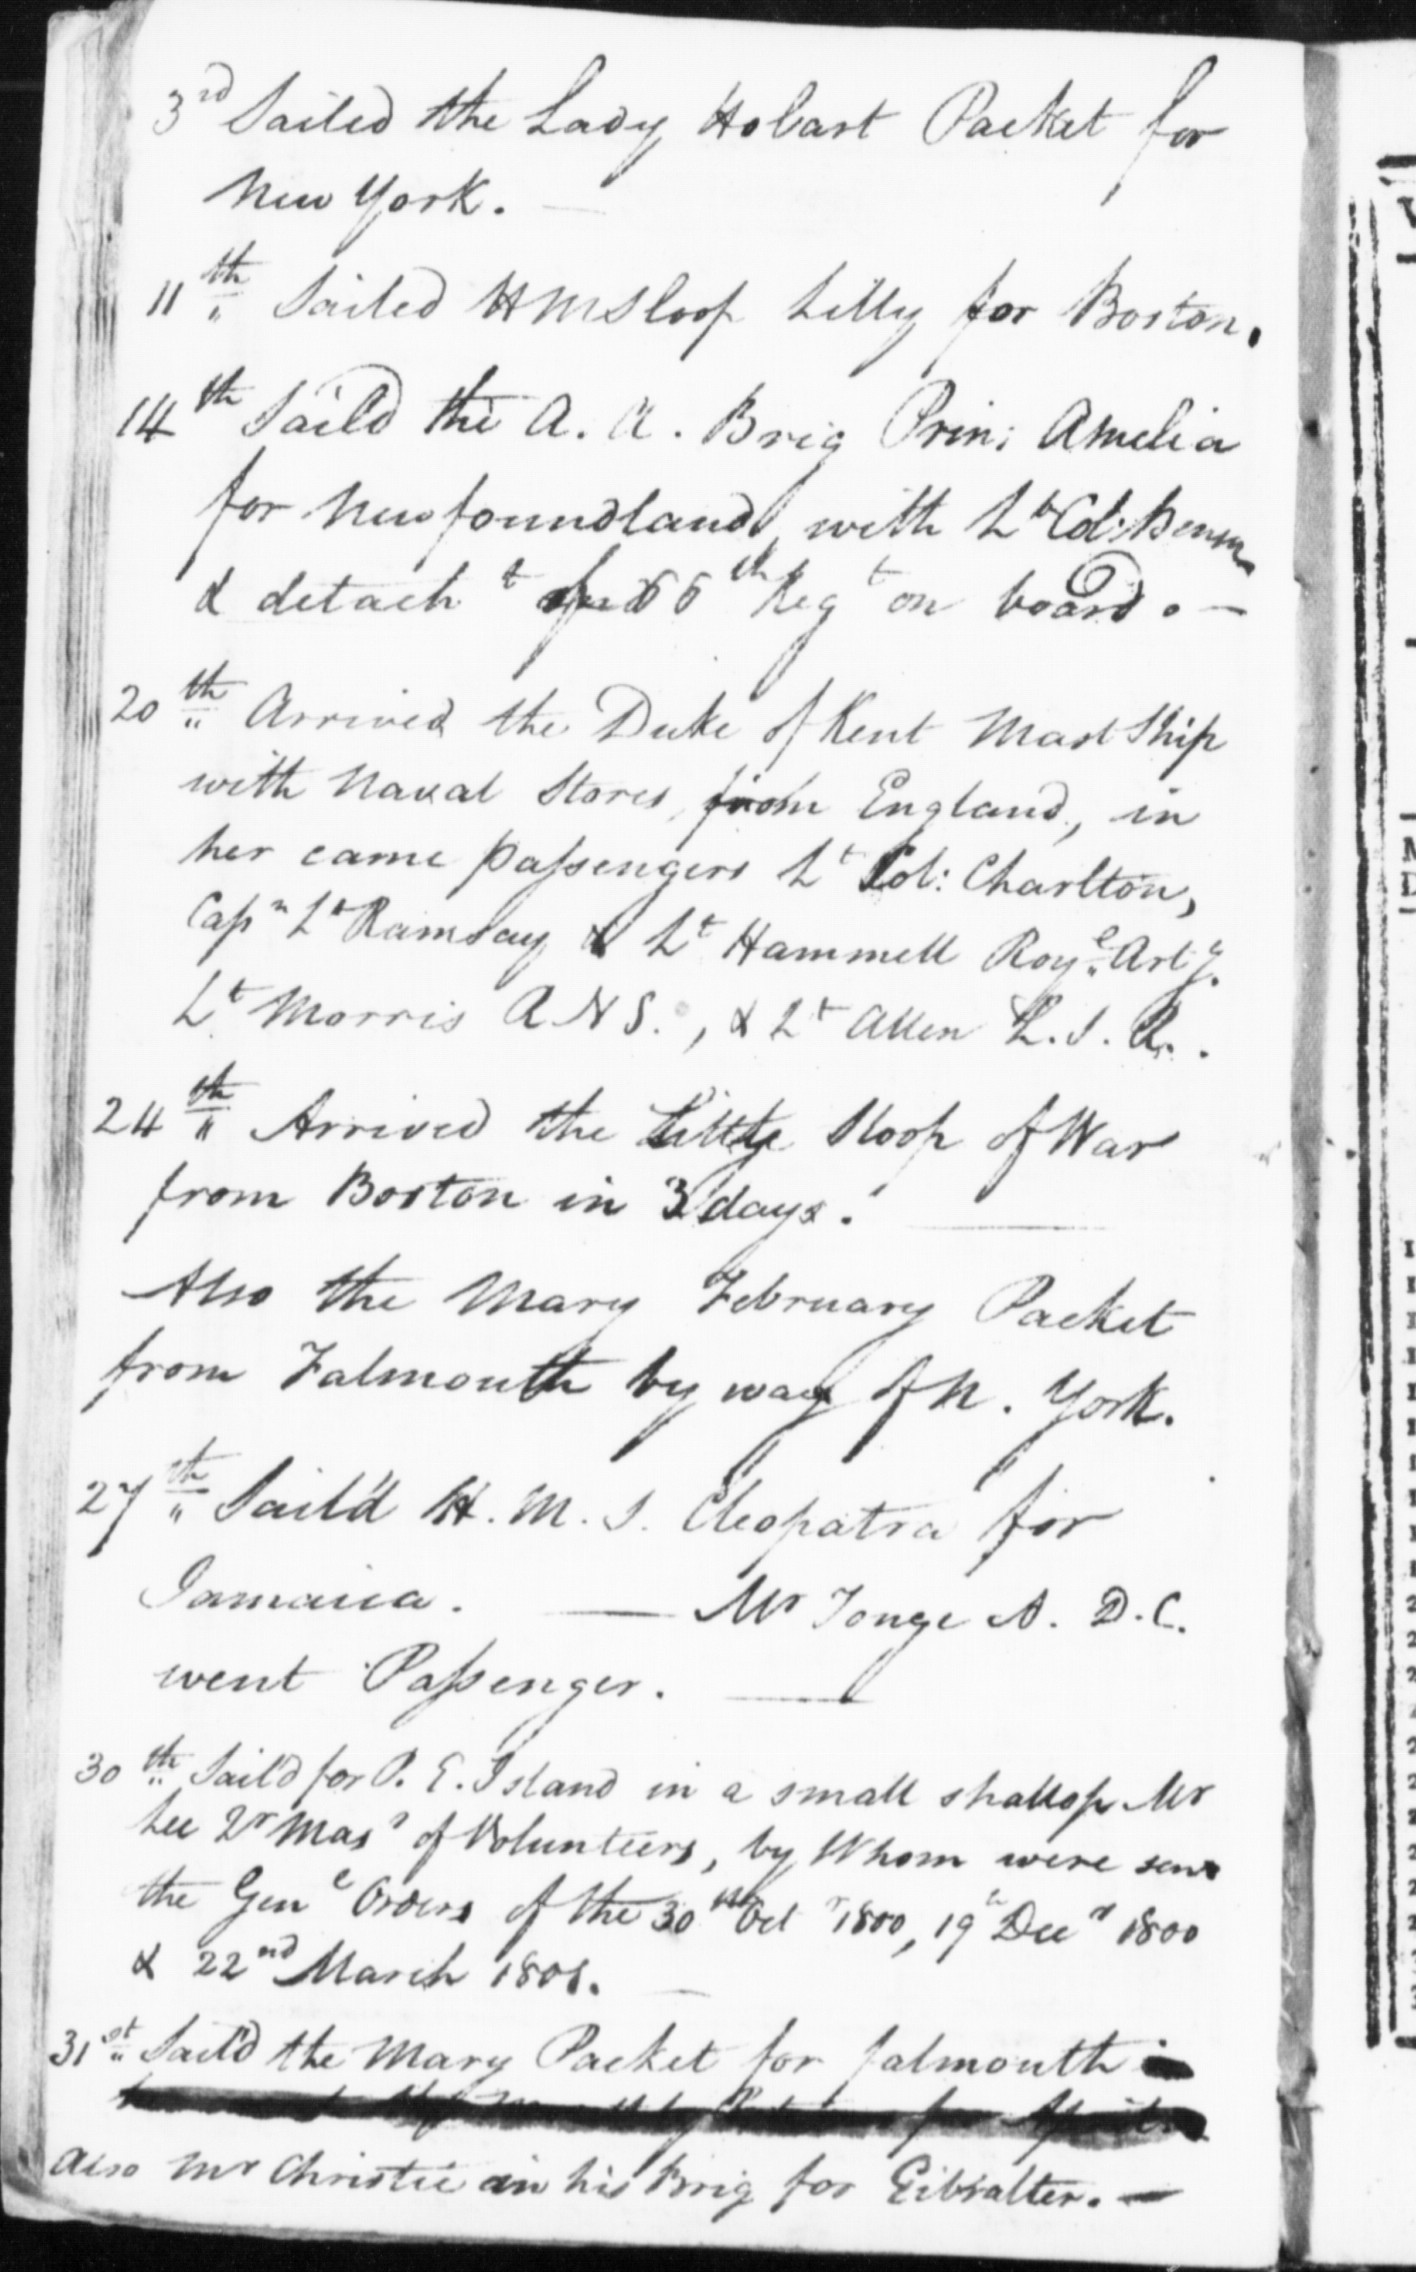 3rd Sailed the Lady Hobart Packet for
New York. —
11th Sailed HMSloop Lilly for Boston.
14th Sail'd the A. A. Brig Prin: Amelia
for Newfoundland, with Lt Col:
& detacht 66th Regt on board. —
20th Arrived the Duke of Kent Mast Ship
with Naval Stores from England, in
her came passengers Lt Col: Charlton,
Capn Lt Ramsay & Lt Hammell Royl Arty.
Lt Morris R N S., & Lt Allen
24th Arrived the Lilly Sloop of War
from Boston in 3 days.
Also the Mary February Packet
from Falmouth by way of N. York.
27th Sail'd H. M. S. Cleopatra for
Jamaica. — Mr Tonge A. D. C.
went Passenger. —
30th Sail'd for P. E. Island in a small shallop Mr
Lee Qr Masr of Volunteers, by Whom were sent
the Genl Orders of the 30th Octr 1800, 19th Decr 1800
& 22nd March 1801. —
31st Sail'd the Mary Packet for falmouth
also Mr Christie in his Brig for Gibralter. —